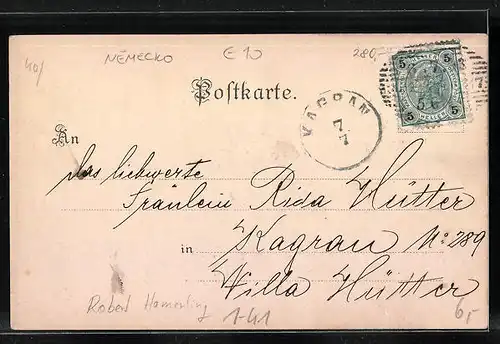 40/
NĚMECKO
€ 10
280,-
Postkarte.
5 5
5 5
HELLER
KAGRAN
7
7
An
das liebwerte
Fräulein Rida Hütter
in Kagran No. 289
Villa Hütter
Robert Hamerling
1-41
6,-